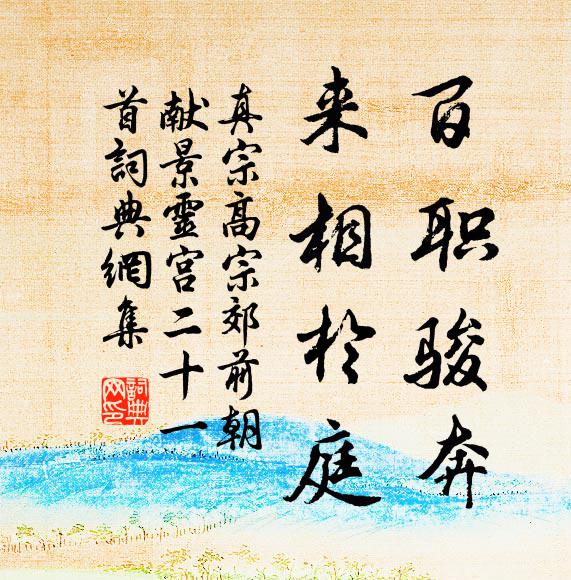 百职骏奔
来相於庭
真宗高宗郊前朝
献景靈宫二十一
首詞典網集
詞典
网印